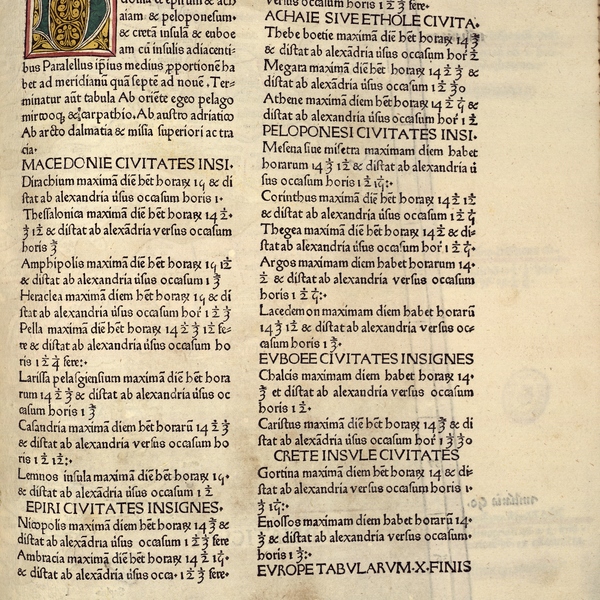 aiam & peloponesum·
& cretā insulā & euboe
am cū insulis adiacenti-
bus Parallelus ipius medius pportionē ha
bet ad meridianū quā septē ad nouē. Ter-
minatur aūt tabula Ab oriēte egeo pelago
mirtooq; & carpathio. Ab austro adriatico
Ab arcto dalmatia & misia superiori ac tra
cia·
MACEDONIE CIVITATES INSI·
Dirachium maximā diē hēt horaꝝ &  di
stat ab alexandria ūsus occasum horis 1·
Thessalonica maximā diē hēt horaꝝ 14
& distat ab alexādria versus occasum
horis
Amphipolis maximā diē hēt horaꝝ
& distat ab alexandria ūsus occasum 1
Heraclea maximā diē hēt horaꝝ & di
stat ab alexandria ūsus occasum hoꝛ 1
Pella maximā diē hēt horaꝝ 14 fe-
re & distat ab alexandria ūsus occasum ho
ris 1 fere:·
Larissa pelasgiensium maximā diē hēt hora
rum 14 & distat ab alexandria ūsus oc
casum horis 1
Casandria maximā diē hēt horarū 14
& distat ab alexandria versus occasum ho
ris 1
Lemnos insula maximā diē hēt horaꝝ
& distat ab alexandria ūsus occasum 1
EPIRI CIVITATES INSIGNES·
Nicopolis maximā diē hēt horaꝝ 14 &
distat ab alexādria ūsus occasum 1 fere
Ambracia maximā diē hēt horaꝝ 14
& distat ab alexādria ūsus occa· 1 fere
versus occasum horis 1 fere·
ACHAIE SIVE ETHOLE CIVITA·
Thebe boetie maximā diē hēt horaꝝ 14
& distat ab alexandria ūsus occasum hoꝛ
Megara maximā diē hēt horaꝝ 14 &
distat ab alexandria ūsus occasum 1
Athene maximā diem hēt horaꝝ 14 &
distat ab alexandria ūsus occasum hoꝛ 1
PELOPONESI CIVITATES INSI·
Mesena siue misetra maximam diem habet
horarum 14 & distat ab alexandria ū
sus occasum horis 1
Corinthus maximam diē hēt horaꝝ 14
& distat ab alexandria ūsus occasum 1
Thegea maximam diē hēt horaꝝ 14 & di-
stat ab alexandria ūsus occasum hoꝛ 1
Argos maximam diem habet horarum 14·
& distat ab alexandria versus occasum
horis 1
Lacedemon maximam diem habet horarū
14 & distat ab alexandria versus oc-
casum horis 1
EVBOEE CIVITATES INSIGNES
Chalcis maximam diem habet horaꝝ 14·
et distat ab alexandria versus occasum
horis 1
Caristus maximam diē hēt horaꝝ 14 & di
stat ab alexādria ūsus occasum hoꝛ 1
CRETE INSVLE CIVITATES
Gortina maximam diē hēt horaꝝ 14 & di-
stat ab alexandria versus occasum horis 1·
Enossos maximam diem habet horarū 14·
& distat ab alexandria versus occasum·
horis 1
EVROPE TABVLARVM·X·FINIS